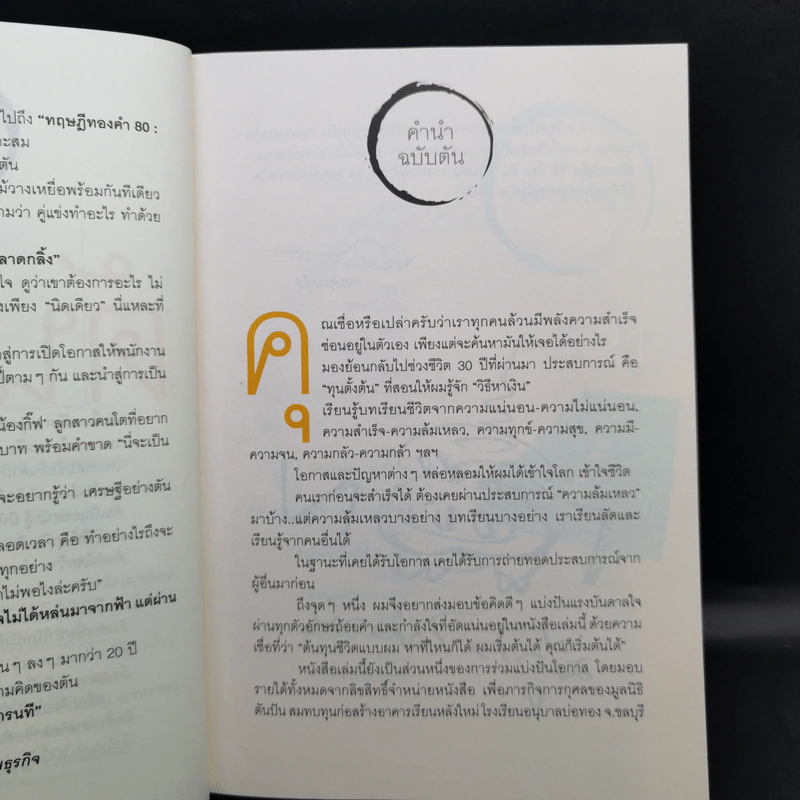 ไปถึง “ทฤษฎีทองคำ 80 :
ะสม
ตัน
ม้วางเหยื่อพร้อมกันทีเดียว
ามว่า คู่แข่งทำอะไร ทำด้วย
ลาดกลิ้ง”
ใจ ดูว่าเขาต้องการอะไร ไม่
งเพียง “นิดเดียว” นี่แหละที่
าสู่การเปิดโอกาสให้พนักงาน
ปี้ตามๆ กัน และนำสู่การเป็น
น้องกิ๊ฟ’ ลูกสาวคนโตที่อยาก
บาท พร้อมคำขาด “นี่จะเป็น
จะอยากรู้ว่า เศรษฐีอย่างตัน
ลอดเวลา คือ ทำอย่างไรถึงจะ
ทุกอย่าง
าไม่พอไงล่ะครับ”
จไม่ได้หล่นมาจากฟ้า แต่ผ่าน
นๆ ลงๆ มากว่า 20 ปี
ามคิดของตัน
ารนที”
ธุรกิจ
คำนำ
ฉบับตัน
คุณเชื่อหรือเปล่าครับว่าเราทุกคนล้วนมีพลังความสำเร็จ
ซ่อนอยู่ในตัวเอง เพียงแต่จะค้นหามันให้เจอได้อย่างไร
มองย้อนกลับไปช่วงชีวิต 30 ปีที่ผ่านมา ประสบการณ์ คือ
“ทุนตั้งต้น” ที่สอนให้ผมรู้จัก “วิธีหาเงิน”
เรียนรู้บทเรียนชีวิตจากความแน่นอน-ความไม่แน่นอน,
ความสำเร็จ-ความล้มเหลว, ความทุกข์-ความสุข, ความมี-
ความจน, ความกลัว-ความกล้า ฯลฯ
โอกาสและปัญหาต่างๆ หล่อหลอมให้ผมได้เข้าใจโลก เข้าใจชีวิต
คนเราก่อนจะสำเร็จได้ ต้องเคยผ่านประสบการณ์ “ความล้มเหลว”
มาบ้าง..แต่ความล้มเหลวบางอย่าง บทเรียนบางอย่าง เราเรียนลัดและ
เรียนรู้จากคนอื่นได้
ในฐานะที่เคยได้รับโอกาส เคยได้รับการถ่ายทอดประสบการณ์จาก
ผู้อื่นมาก่อน
ถึงจุดๆ หนึ่ง ผมจึงอยากส่งมอบข้อคิดดีๆ แบ่งปันแรงบันดาลใจ
ผ่านทุกตัวอักษรถ้อยคำ และกำลังใจที่อัดแน่นอยู่ในหนังสือเล่มนี้ ด้วยความ
เชื่อที่ว่า “ต้นทุนชีวิตแบบผม หาที่ไหนก็ได้ ผมเริ่มต้นได้ คุณก็เริ่มต้นได้”
หนังสือเล่มนี้ยังเป็นส่วนหนึ่งของการร่วมแบ่งปันโอกาส โดยมอบ
รายได้ทั้งหมดจากลิขสิทธิ์จำหน่ายหนังสือ เพื่อภารกิจการกุศลของมูลนิธิ
ตันปัน สมทบทุนก่อสร้างอาคารเรียนหลังใหม่ โรงเรียนอนุบาลบ่อทอง จ.ชลบุรี